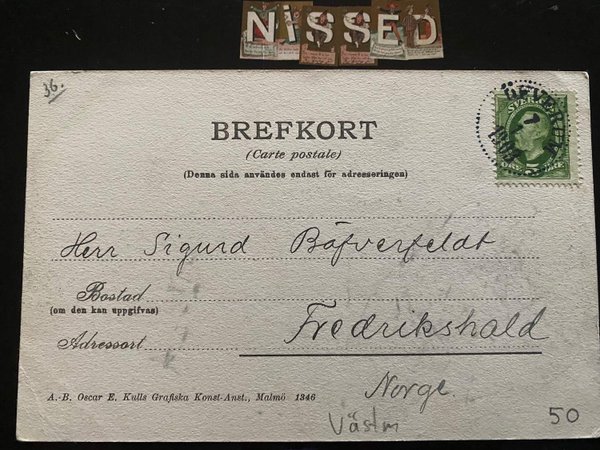 NiSSED
36.
BREFKORT
(Carte postale)
(Denna sida användes endast för adresseringen)
SVERIGE
Herr Sigurd Böfverfeldt
Bostad
(om den kan uppgifvas)
Fredrikshald
Adressort
Norge.
A.-B. Oscar E. Kulls Grafiska Konst-Anst., Malmö 1346
Västm
50